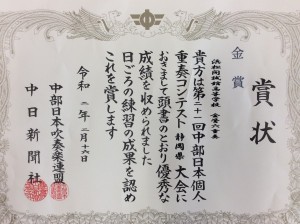 賞状
金賞
浜松開誠館高等学校
管楽八重奏
貴方は第二十一回中部日本個人
重奏コンテスト静岡県大会に
おきまして頭書のとおり優秀な
成績を収められました
日ごろの練習の成果を認め
これを賞します
令和二年二月十六日
中部日本吹奏楽連盟
中日新聞社